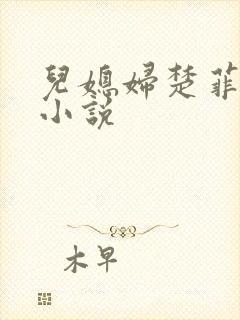 兒媳婦楚菲
小說
木早